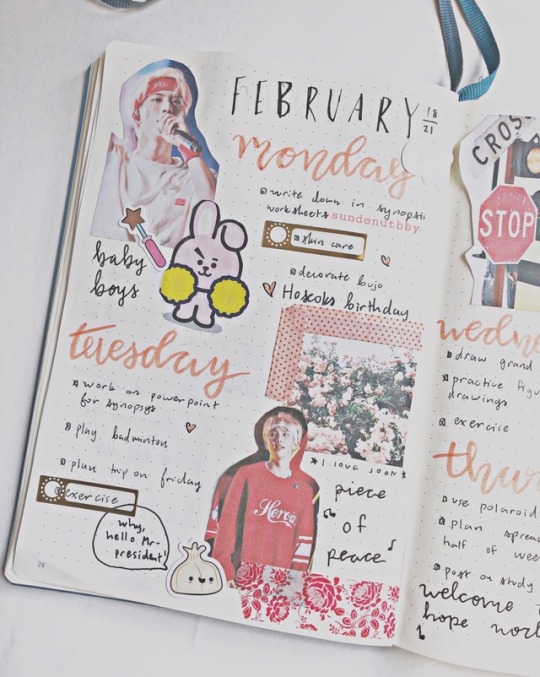 FEBRUARY 18
21
monday
write down in synopsis
worksheets sundonutbby
skin care
decorate bujo
Hoseoks birthday
baby
boys
tuesday
work on powerpoint
for synopsys
play badminton
plan trip on friday
exercise
why,
hello Mr.
president!
I LOVE
piece
of
peace
28
CROS
STOP
wedne
draw grand
practive figu
drawings
exercise
thur
use polaroid
plan sprea
half of wee
post on study
welcome
hope worl